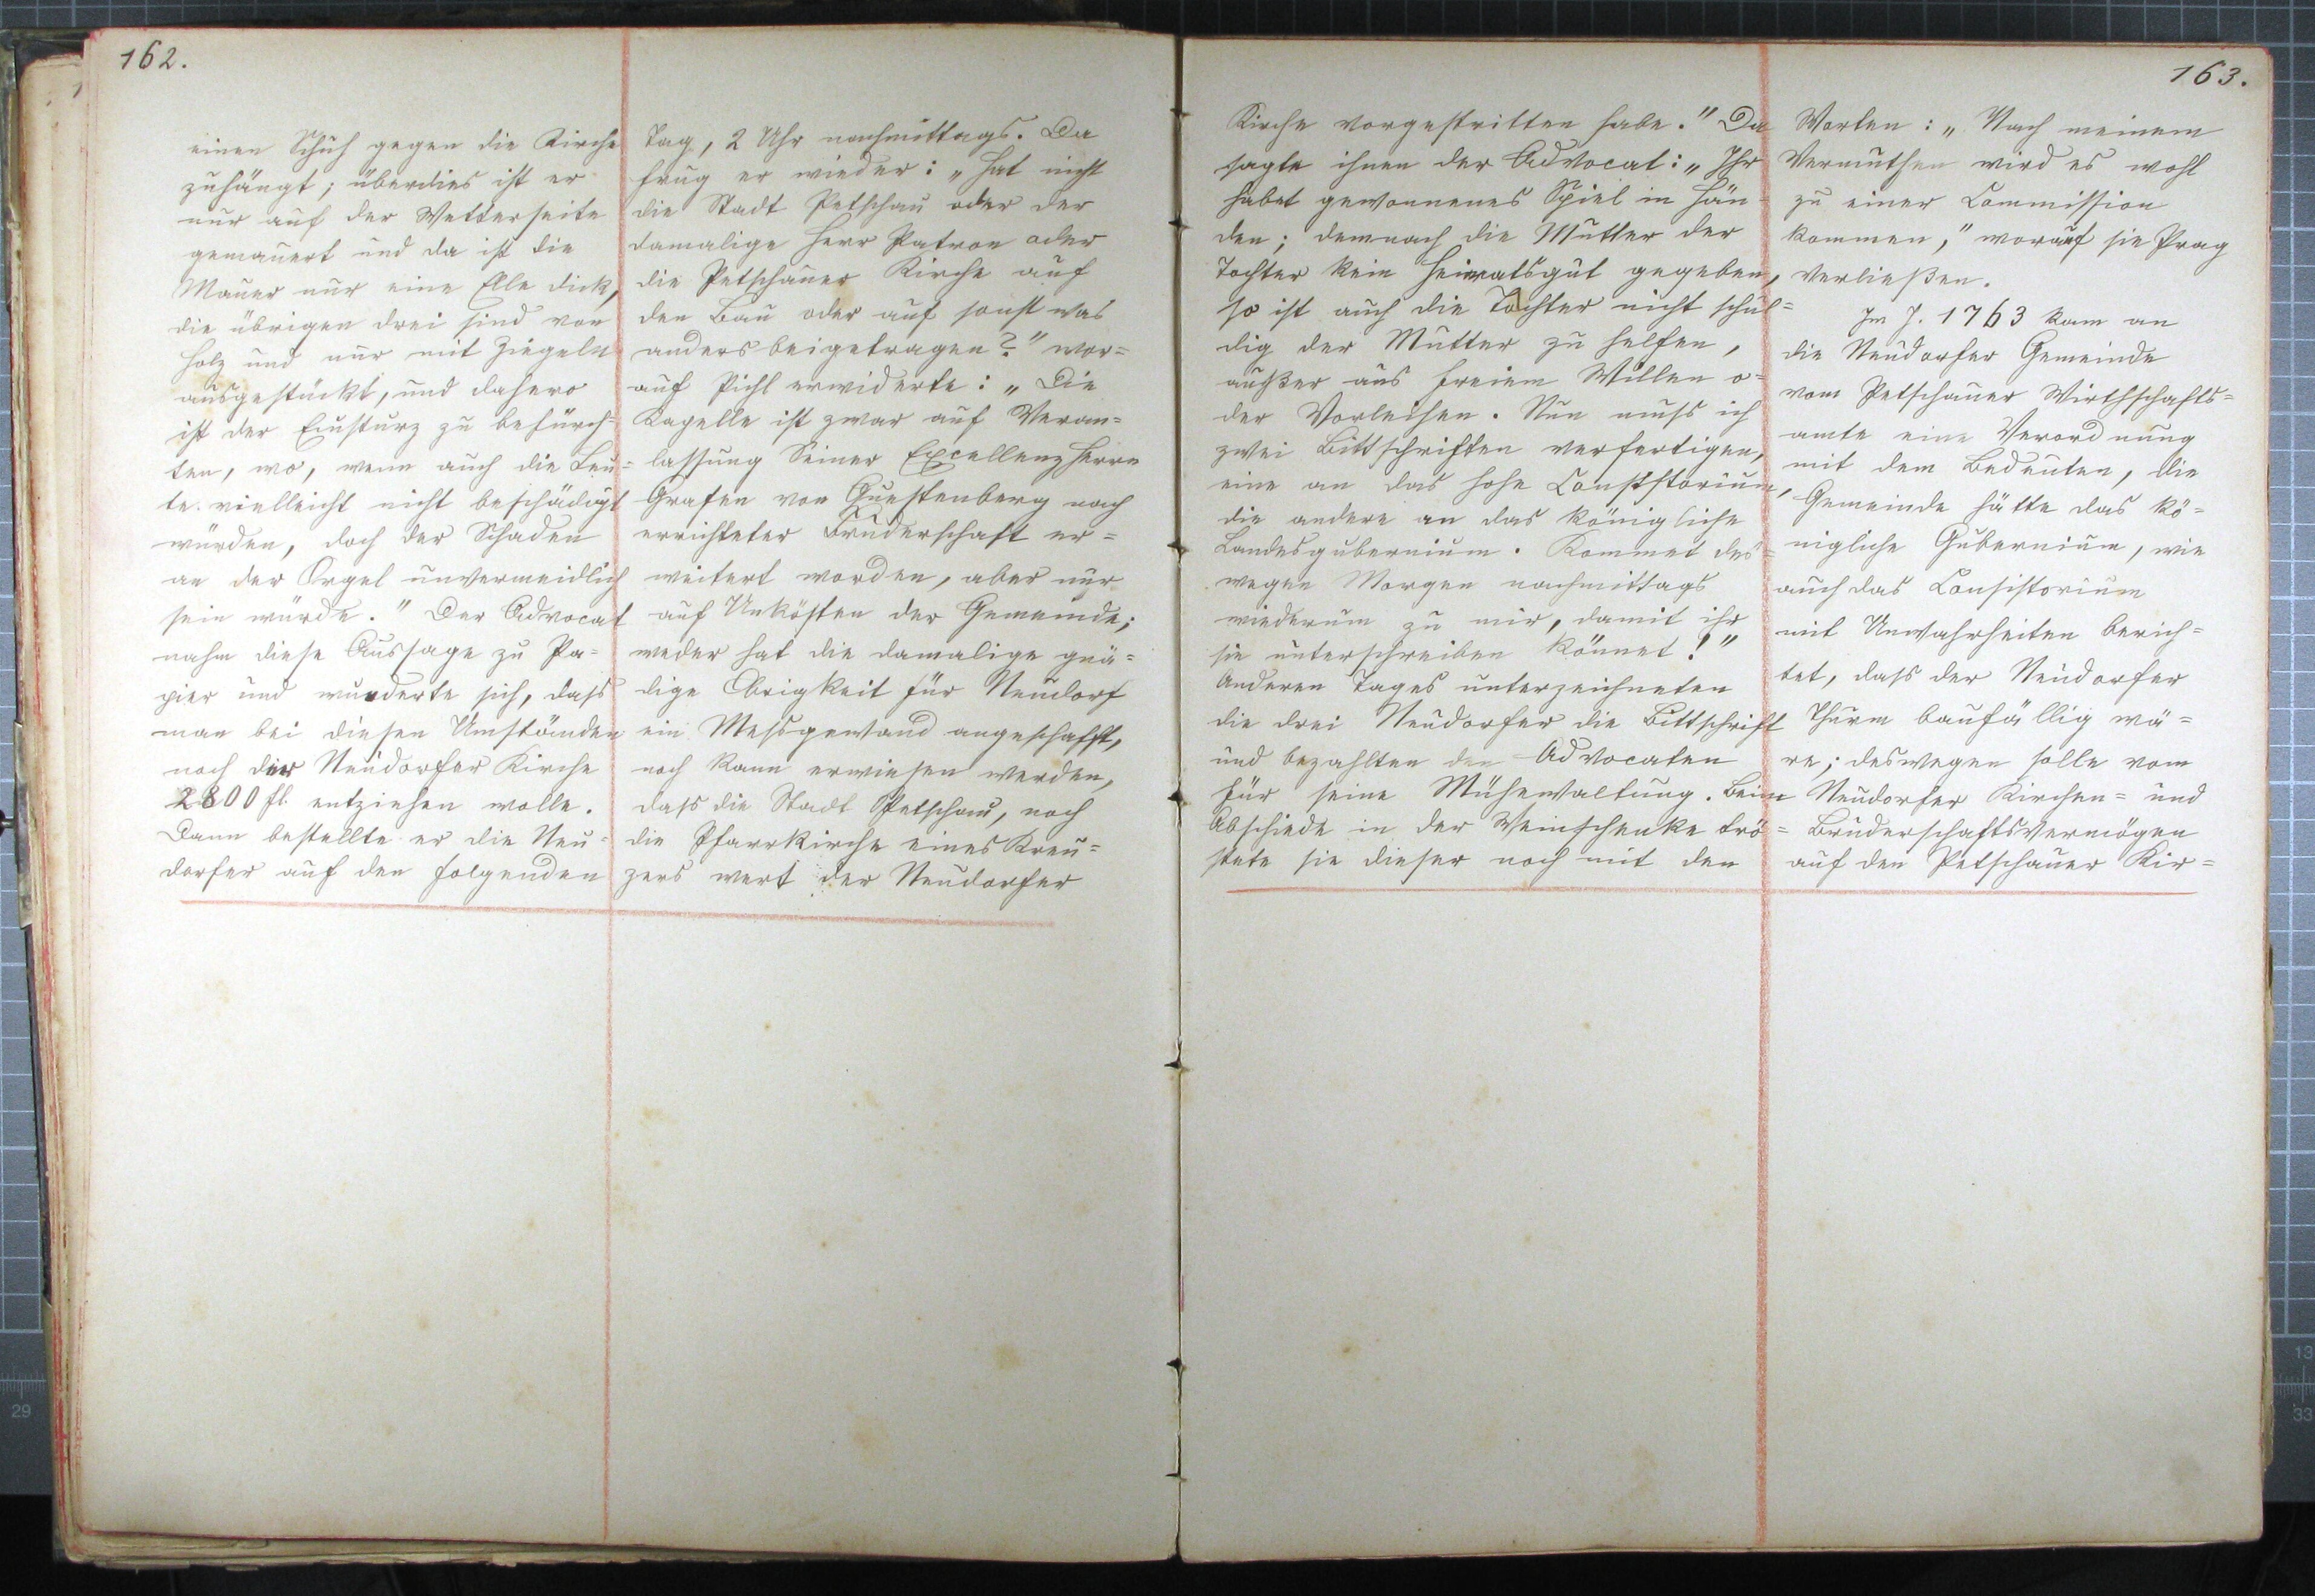 162.
einen Schuh gegen die Kirche
zuhängt; überdies ist er
nur auf der Wetterseite
gemauert und da ist die
Mauer nur eine Elle dick,
die übrigen drei sind von
Holz und nur mit Ziegeln
ausgestückt, und dahero
ist der Einsturz zu befürch=
ten, wo, wenn auch die Leu=
te vielleicht nicht beschädigt
würden, doch der Schaden
an der Orgel unvermeidlich
sein würde." Der Advocat
nahm diese Aussage zu Pa=
pier und wunderte sich, dass
man bei diesen Umständen
noch der Neudorfer Kirche
2800 fl entziehen wolle.
Dann bestellte er die Neu=
dorfer auf den folgenden
Tag, 2 Uhr nachmittags. Da
frug er wieder: „Hat nicht
die Stadt Petschau oder der
damalige Herr Patron oder
die Petschauer Kirche auf
den Bau oder auf sonst was
anders beigetragen?" wor=
auf Pichl erwiderte: „Die
Kapelle ist zwar auf Veran=
lassung Seiner Excellenz Herrn
Grafen von Questenberg nach
errichteter Bruderschaft er=
weitert worden, aber nur
auf Unkösten der Gemeinde;
weder hat die damalige gnä=
dige Obrigkeit für Neudorf
ein Messgewand angeschafft,
noch kann erwiesen werden,
dass die Stadt Petschau, noch
die Pfarrkirche eines Kreu=
zers wert der Neudorfer
163.
Kirche vorgestritten habe." Da
sagte ihnen der Advocat: „Ihr
habet gewonnenes Spiel in Hän=
den; demnach die Mutter der
Tochter kein Heiratsgut gegeben,
so ist auch die Tochter nicht schul=
dig der Mutter zu helfen,
außer aus freiem Willen o=
der Vorleihen. Nun muss ich
zwei Bittschriften verfertigen,
eine an das hohe Consistorium,
die andere an das königliche
Landesgubernium. Kommet des=
wegen Morgen nachmittags
wiederum zu mir, damit ihr
sie unterschreiben könnet!"
Anderen Tages unterzeichneten
die drei Neudorfer die Bittschrift
und bezahlten den Advocaten
für seine Mühewaltung. Beim
Abschiede in der Weinschenke trö=
stete sie dieser noch mit den
Worten: „Nach meinem
Vermuthen wird es wohl
zu einer Commission
kommen," worauf sie Prag
verließen.
Im J. 1763 kam an
die Neudorfer Gemeinde
vom Petschauer Wirthschafts=
amte eine Verordnung
mit dem Bedeuten, die
Gemeinde hätte das kö=
nigliche Gubernium, wie
auch das Consistorium
mit Unwahrheiten berich=
tet, dass der Neudorfer
Thurm baufällig wä=
re; deswegen solle vom
Neudorfer Kirchen= und
Bruderschaftsvermögen
auf den Petschauer Kir=